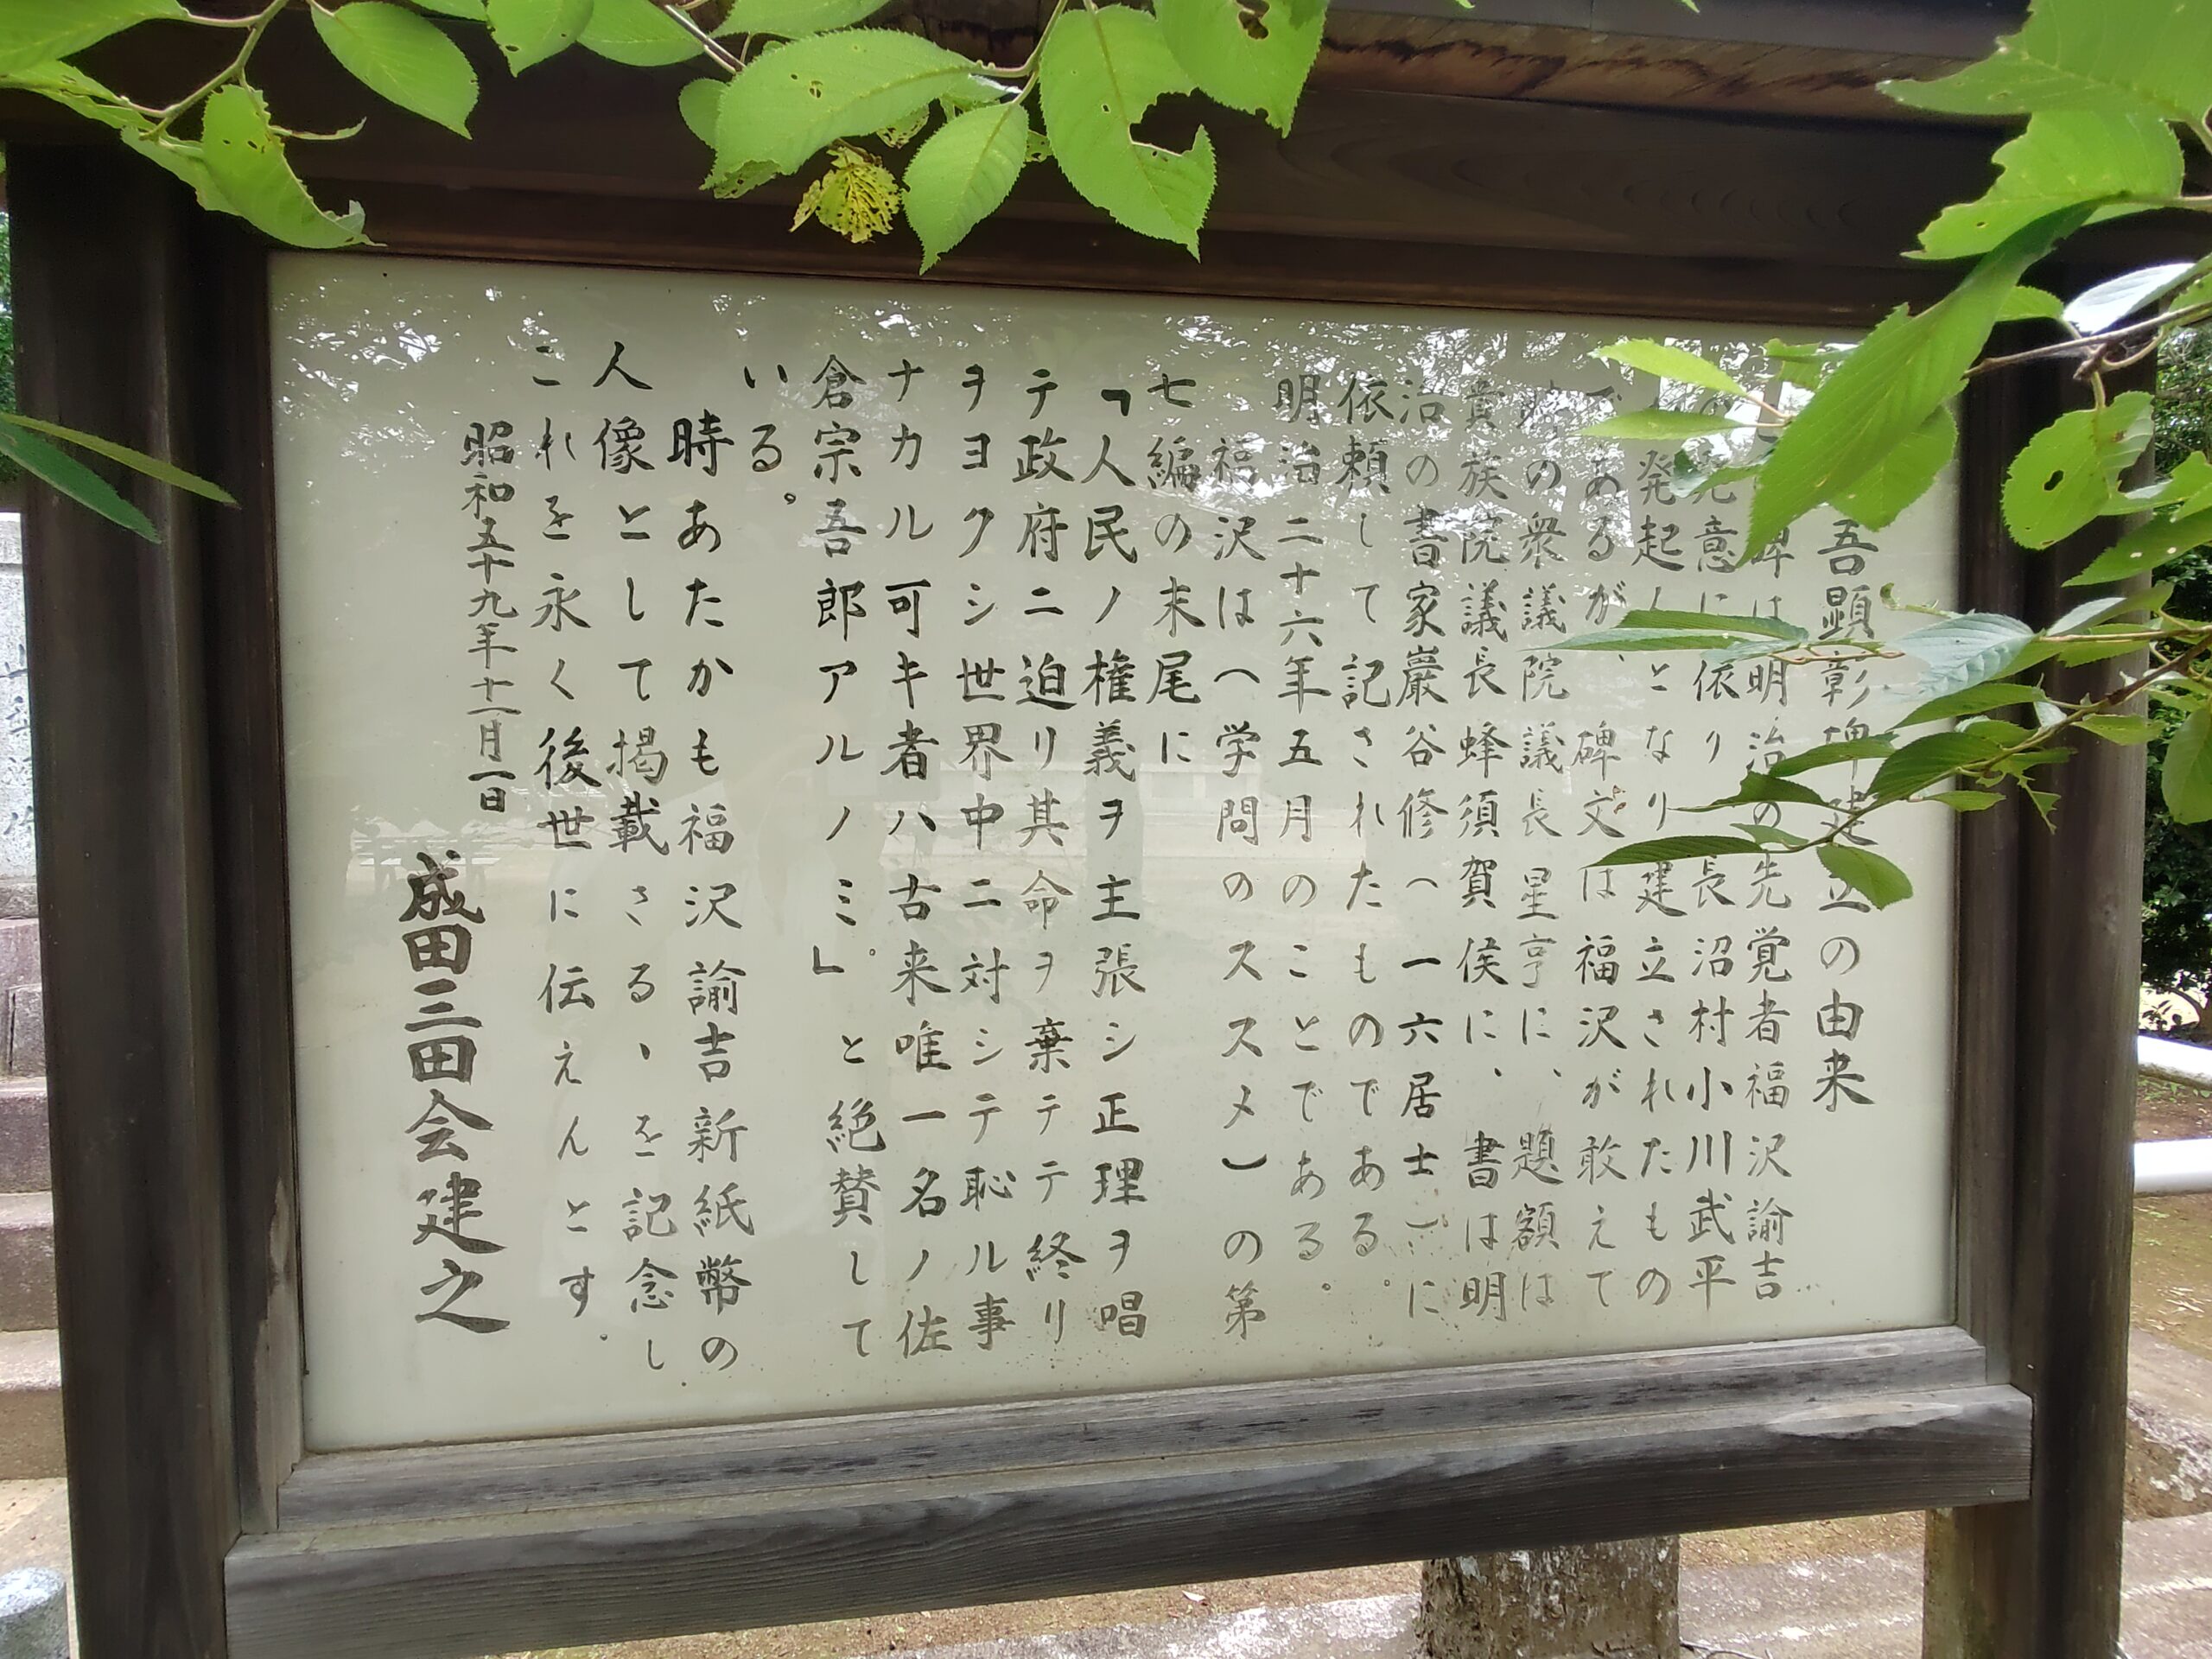 吾顕彰碑建立の由来
碑は明治の先覚者福沢諭吉
の発意に依り長沼村小川武平
発起人となり建立されたもの
であるが、碑文は福沢が敢えて
時の衆議院議長星亨に、題額は
貴族院議長蜂須賀侯に、書は明
治の書家巖谷修(一六居士)に
依頼して記されたものである。
明治二十六年五月のことである。
福沢は(学問のススメ)の第
七編の末尾に
「人民ノ権義ヲ主張シ正理ヲ唱
テ政府ニ迫リ其命ヲ棄テテ終リ
ヲヨクシ世界中ニ対シテ恥ル事
ナカル可キ者ハ古来唯一名ノ佐
倉宗吾郎アルノミ。」と絶賛して
いる。
時あたかも福沢諭吉新紙幣の
人像として掲載さるゝを記念し
これを永く後世に伝えんとす。
昭和五十九年十一月一日
成田三田会建之